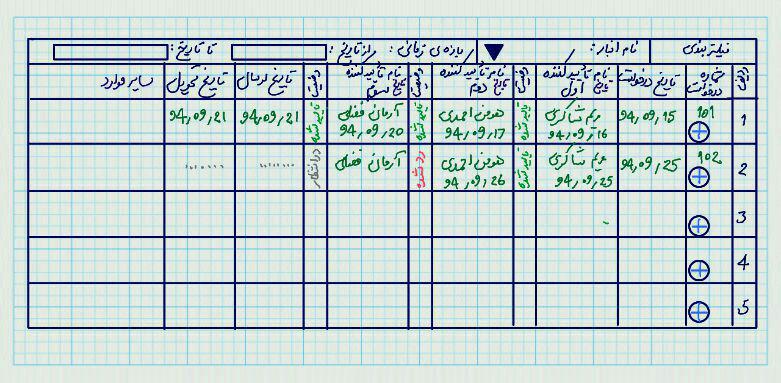 فیلتر بندی نام انبار : بازه ی زمانی : از تاریخ : تا تاریخ :
ردیف شماره درخواست تاریخ درخواست نام تأیید کننده اول تاریخ وضعیت نام تأیید کننده دوم تاریخ وضعیت نام تأیید کننده سوم تاریخ وضعیت تاریخ ارسال تاریخ تحویل سایر موارد
1 101 94,09,15 مریم شاکری 94,09,16 تایید شده هومن احمدی 94,09,17 تایید شده آرمان فضلی 94,09,20 تایید شده 94,09,21 94,09,21
2 102 94,09,25 مریم شاکری 94,09,25 تایید شده هومن احمدی 94,09,26 رد شده آرمان فضلی در انتظار
3
4
5